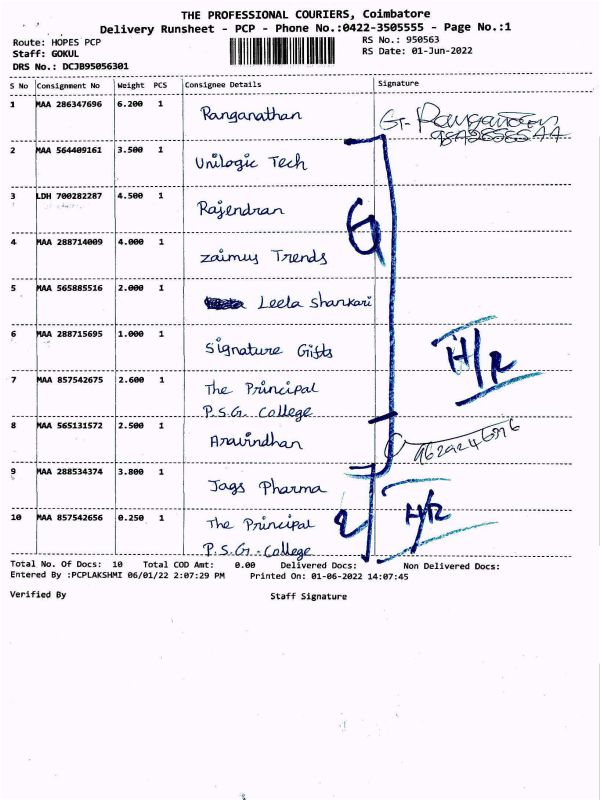 THE PROFESSIONAL COURIERS, Coimbatore
Delivery Runsheet - PCP - Phone No.:0422-3505555 - Page No.:1
Route: HOPES PCP RS No.: 950563
Staff: GOKUL RS Date: 01-Jun-2022
DRS No.: DCJB95056301
S No Consignment No Weight PCS Consignee Details Signature
1 MAA 286347696 6.200 1 Ranganathan G. Ranganathan
2 MAA 564409161 3.500 1 Unilogic Tech
3 LDH 700282287 4.500 1 Rajendran
4 MAA 288714009 4.000 1 Zaimus Trends
5 MAA 565885516 2.000 1 Leela Shankari
6 MAA 288715695 1.000 1 Signature Gifts
H/R
7 MAA 857542675 2.600 1 The Principal
P.S.G. College
8 MAA 565131572 2.500 1 Aravindhan
9 MAA 288534374 3.800 1 Jags Pharma
10 MAA 857542656 0.250 1 The Principal H/R
P.S.G. College
Total No. Of Docs: 10 Total COD Amt: 0.00 Delivered Docs: Non Delivered Docs:
Entered By :PCPLAKSHMI 06/01/22 2:07:29 PM Printed On: 01-06-2022 14:07:45
Verified By Staff Signature